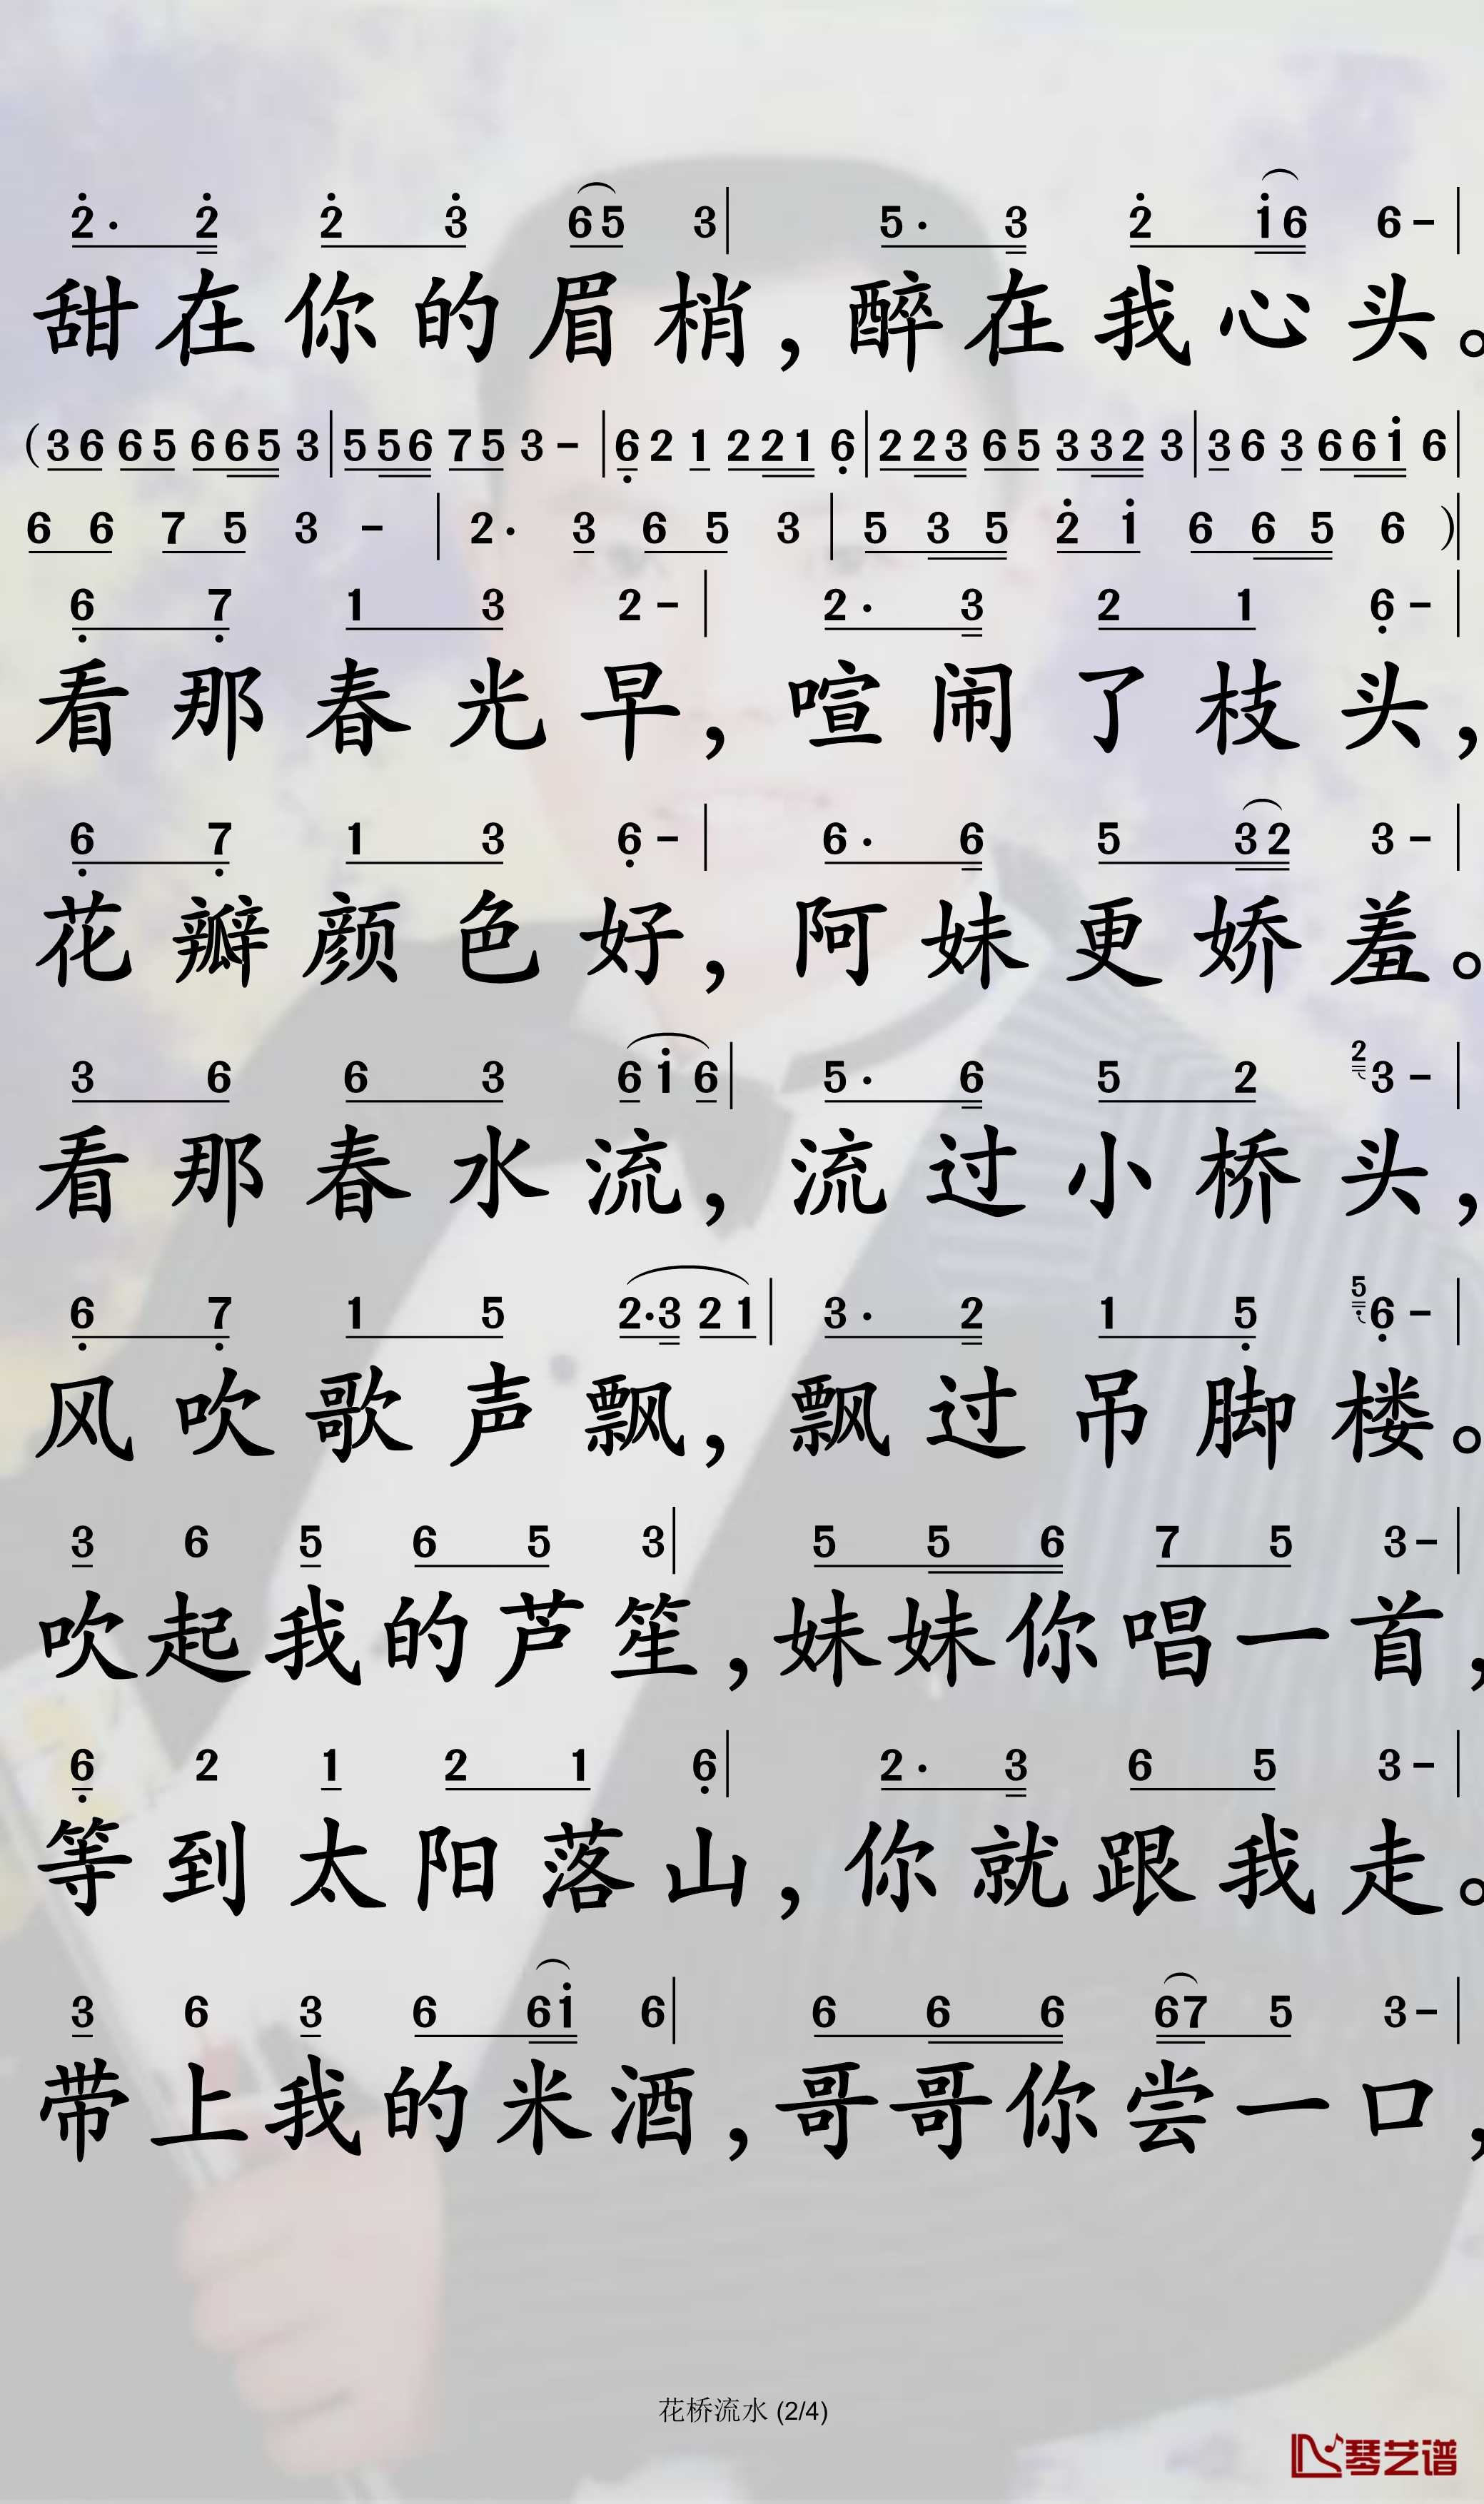 2· 2 2 3 65 3 | 5· 3 2 16 6 - |
甜在你的眉梢，醉在我心头。
(36 65 665 3 | 556 75 3 - | 6 2 1 221 6 | 223 65 332 3 | 3 6 3 661 6 |
6 6 7 5 3 - | 2· 3 6 5 3 | 5 3 5 2 1 6 6 5 6 ) |
6 7 1 3 2 - | 2· 3 2 1 6 - |
看那春光早，喧闹了枝头，
6 7 1 3 6 - | 6· 6 5 32 3 - |
花瓣颜色好，阿妹更娇羞。
3 6 6 3 6 1 6 | 5· 6 5 2 2 3 - |
看那春水流，流过小桥头，
6 7 1 5 2·3 2 1 | 3· 2 1 5 5 6 - |
风吹歌声飘，飘过吊脚楼。
3 6 5 6 5 3 | 5 5 6 7 5 3 - |
吹起我的芦笙，妹妹你唱一首，
6 2 1 2 1 6 | 2· 3 6 5 3 - |
等到太阳落山，你就跟我走。
3 6 3 6 61 6 | 6 6 6 67 5 3 - |
带上我的米酒，哥哥你尝一口，
花桥流水 (2/4)
琴艺谱